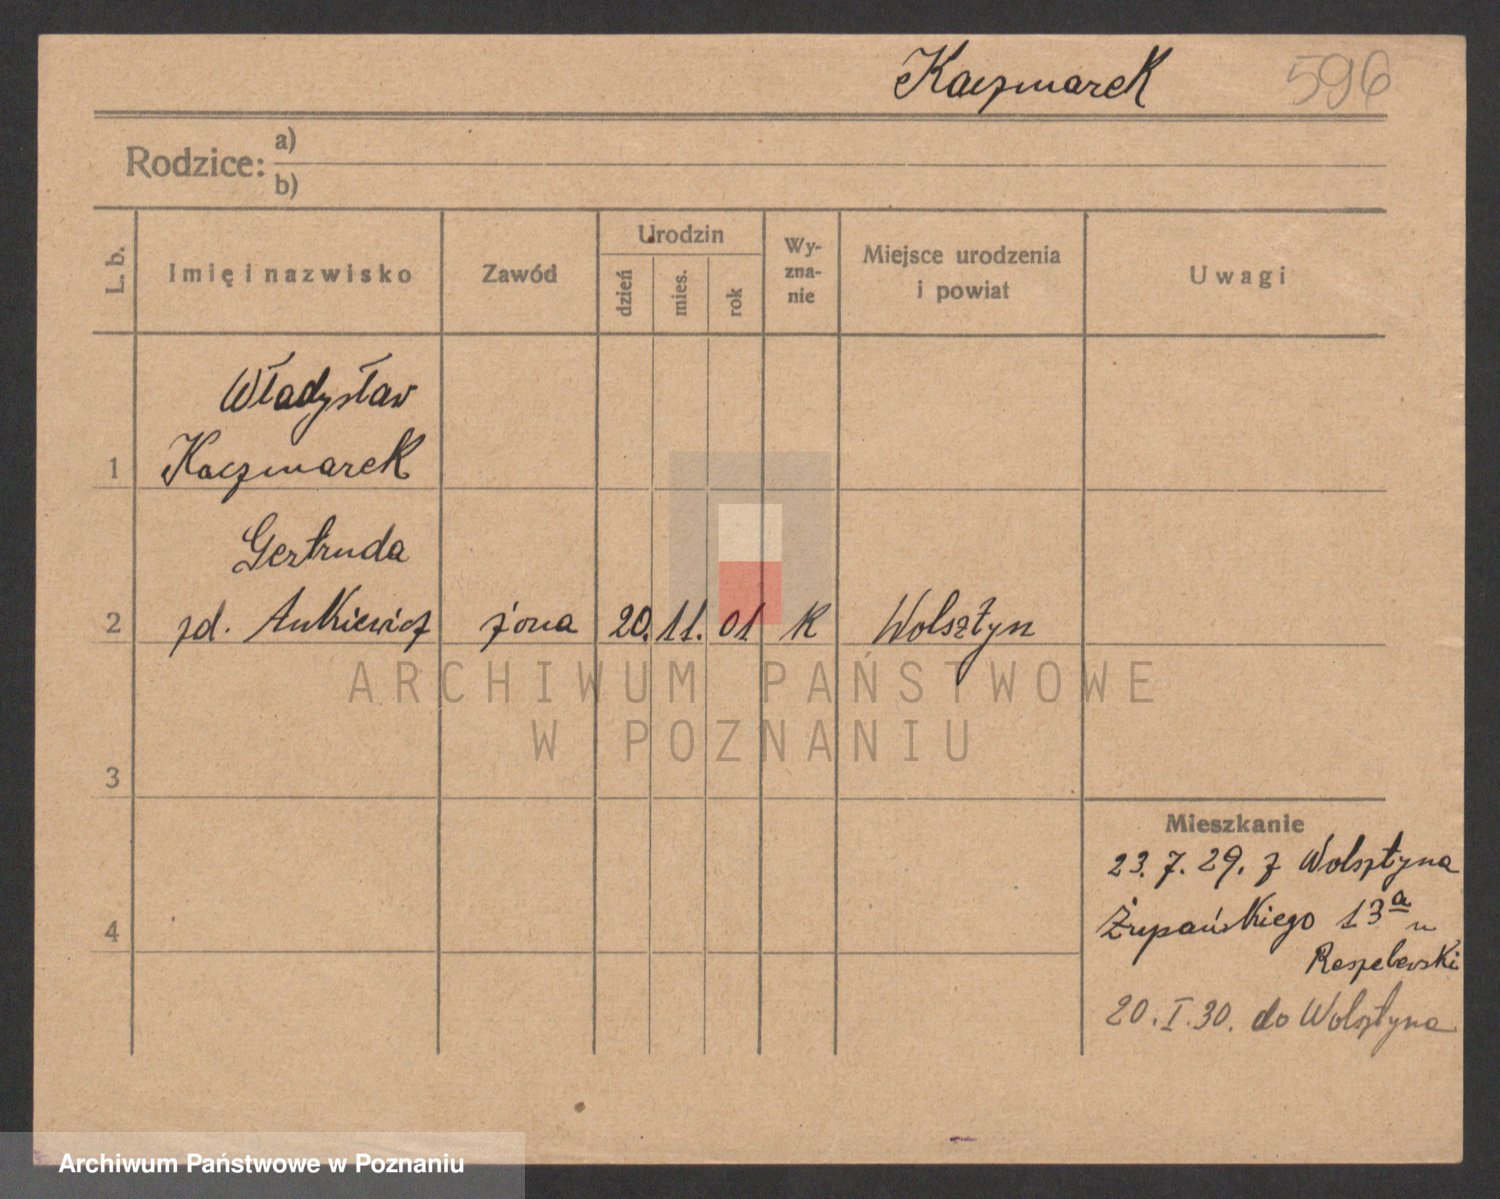 Kaczmarek 596
Rodzice: a)
b)
L. b.
Imię i nazwisko
Zawód
Urodzin
dzień
mies.
rok
Wy-
zna-
nie
Miejsce urodzenia
i powiat
Uwagi
Władysław
1 Kaczmarek
Gertruda
2 zd. Ankiewicz żona 20. 11. 01 K Wolsztyn
ARCHIWUM PAŃSTWOWE
W POZNANIU
3
Mieszkanie
23.7.29. z Wolsztyna
4 Żupańskiego 13a u
20.I.30. do Wolsztyna
Archiwum Państwowe w Poznaniu